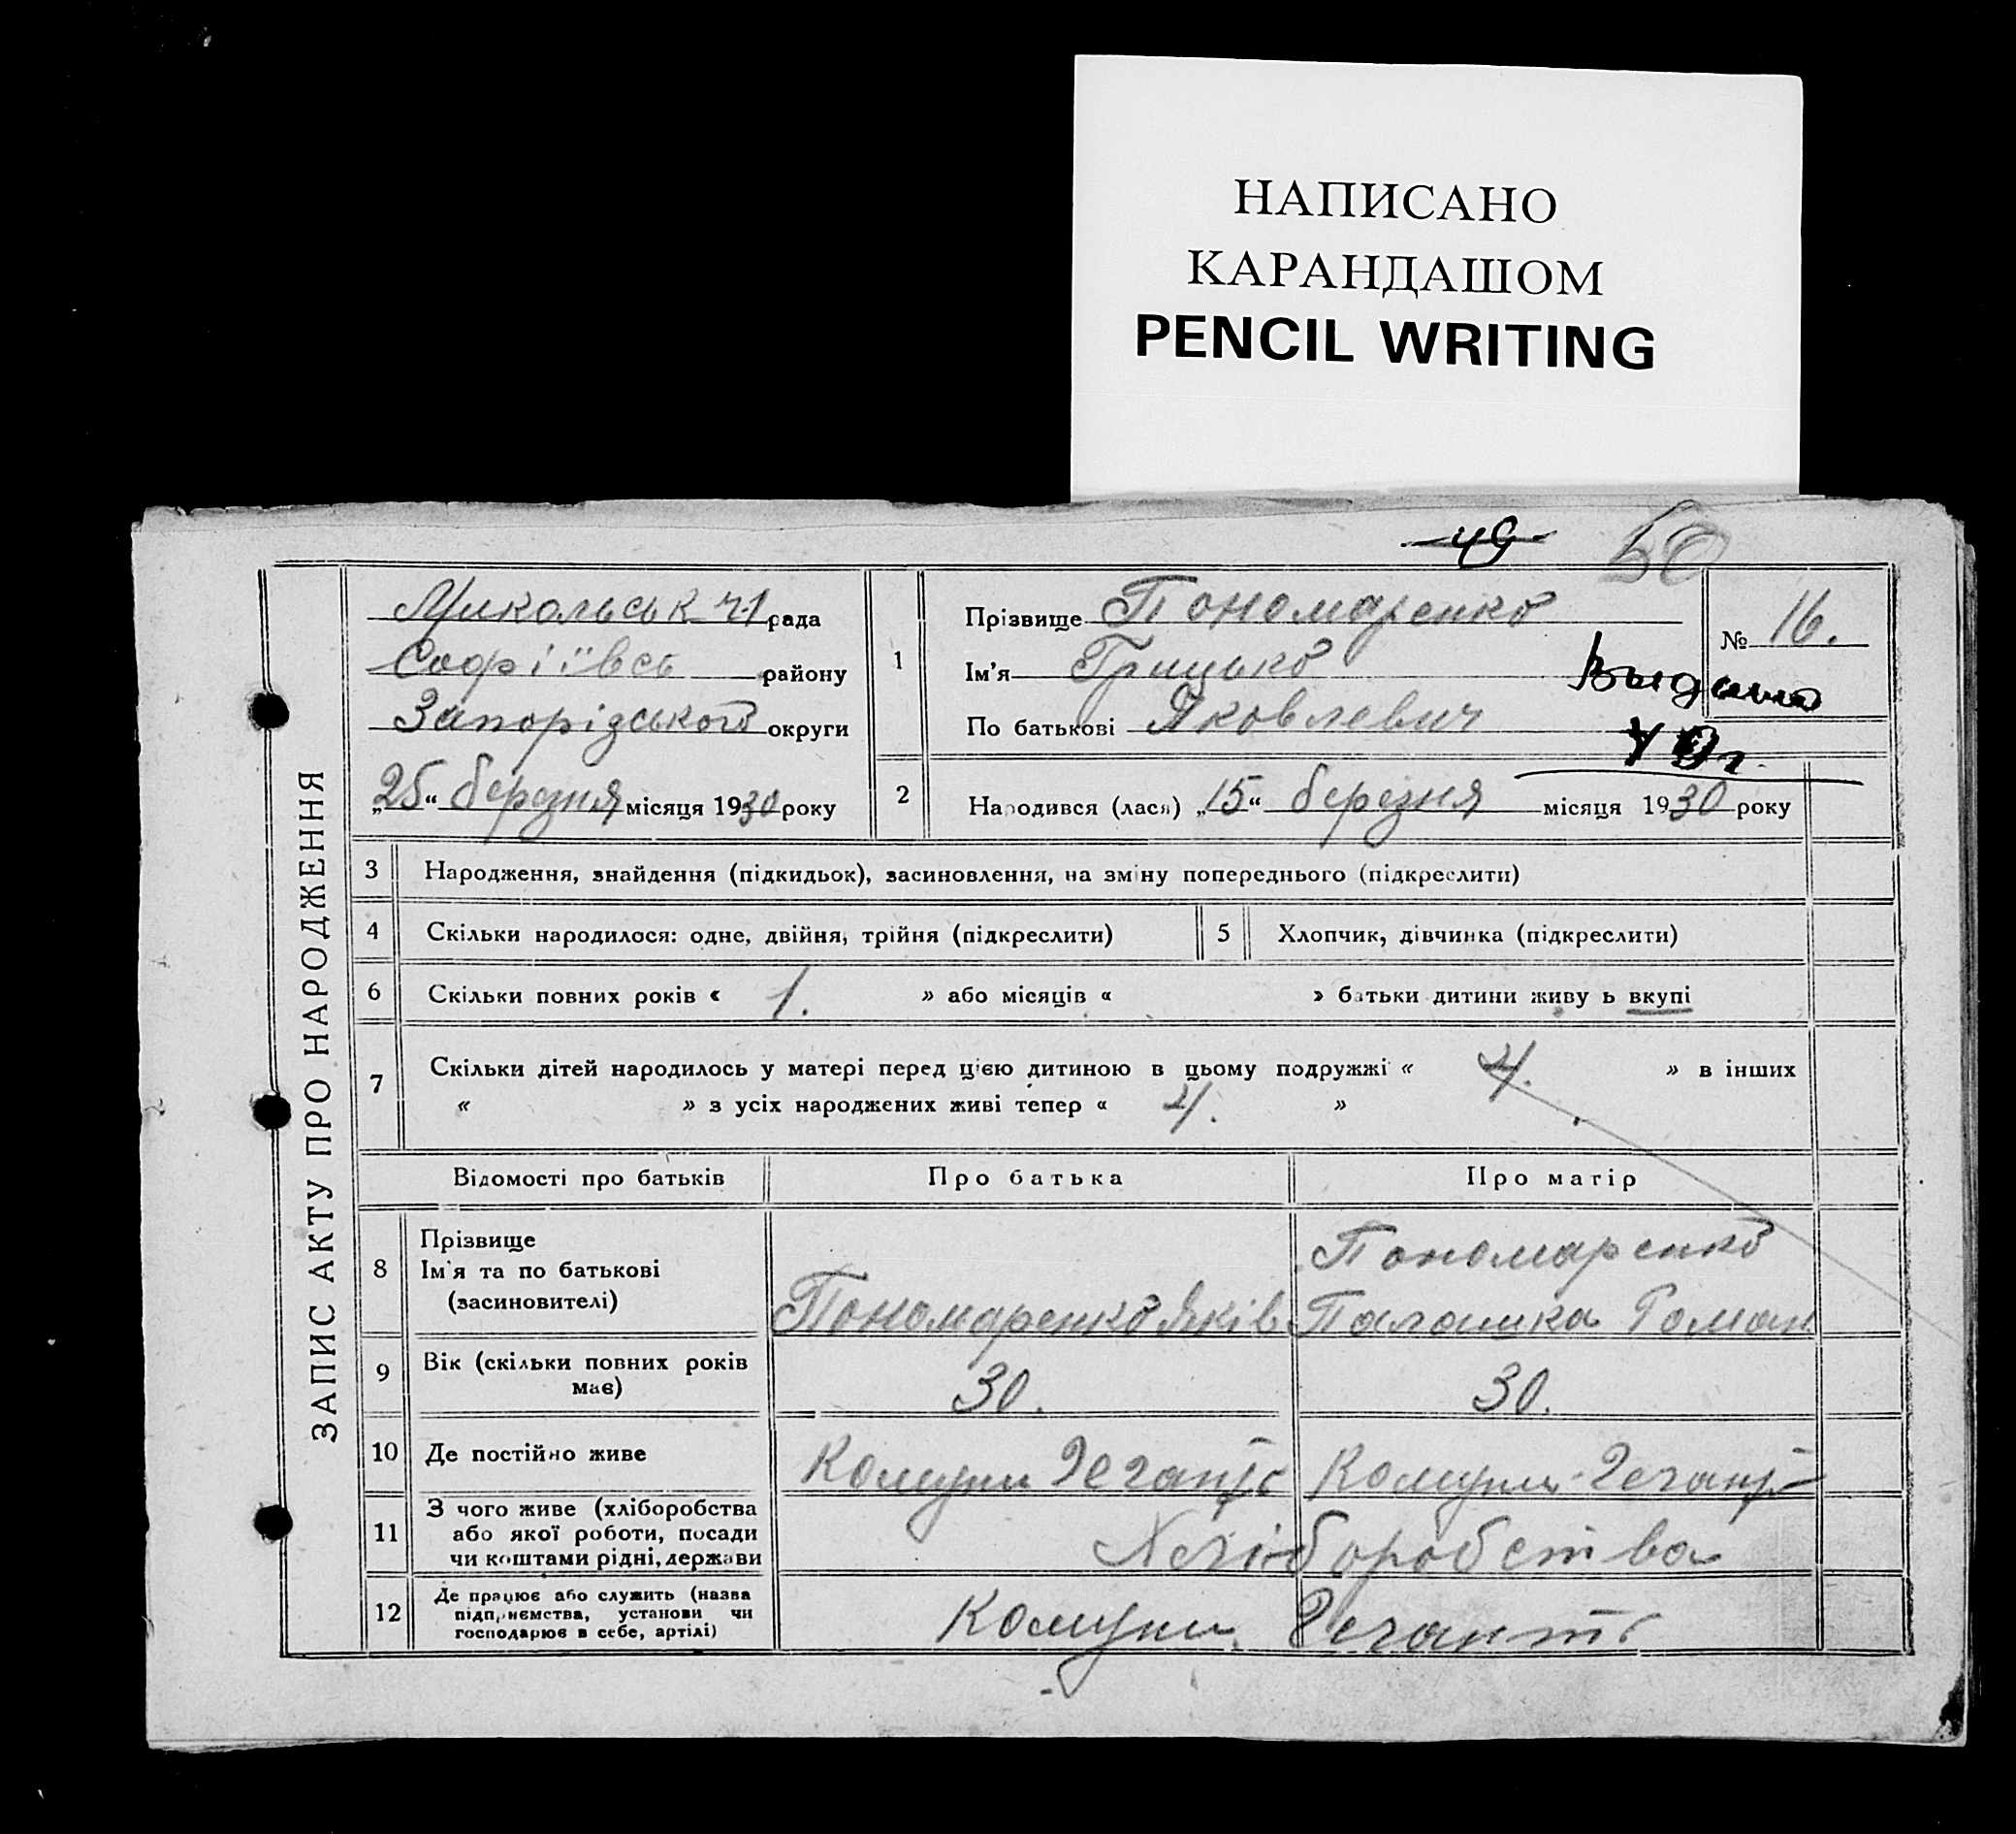 НАПИСАНО
КАРАНДАШОМ
PENCIL WRITING
49 50
ЗАПИС АКТУ ПРО НАРОДЖЕННЯ
Микольськ №1 рада
Софіївсь району
Запорізського округи
„25“ березня місяця 1930 року
1
Прізвище Пономаренко
Ім'я Грицько
По батькові Яковлевич
№ 16.
Выдано
2 Народився (лася) „15“ березня місяця 1930 року
3 Народження, знайдення (підкидьок), засиновлення, на зміну попереднього (підкреслити)
4 Скільки народилося: одне, двійня, трійня (підкреслити) 5 Хлопчик, дівчинка (підкреслити)
6 Скільки повних років « 1. » або місяців « » батьки дитини живу ь вкупі
7 Скільки дітей народилось у матері перед цією дитиною в цьому подружжі « 4. » в інших
« » з усіх народжених живі тепер « 4. »
Відомості про батьків Про батька Про матір
8 Прізвище
Ім'я та по батькові
(засновителі)
Пономаренко Яків
Пономаренко
Палашка Роман
9 Вік (скільки повних років
має)
30. 30.
10 Де постійно живе Комуни Гегантъ Комуни Гегант
11 З чого живе (хліборобства
або якої роботи, посади
чи коштами рідні, держави
Хліборобства
12 Де працює або служить (назва
підприємства, установи чи
господарює в себе, артілі)
Комуни Гегантъ